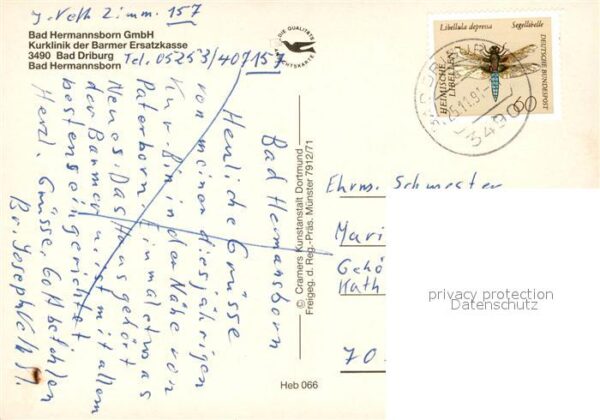 J. Velh Zimm. 157
Bad Hermannsborn GmbH
Kurklinik der Barmer Ersatzkasse
3490 Bad Driburg
Bad Hermannsborn
Tel. 05253/407157
DIE QUALITÄTS
ANSICHTSKARTE
Bad Hermansborn
Herliche Grüsse
von meiner diesjährigen
Kur. Bin in der Nähe von
Paterborn. Einmal etwas
Neues. Das Haus gehört
der Barmer u. ist mit allem
bestens eingerichtet
Herzl. Grüsse, Gott befohlen
Br. Joseph Velh SJ.
© Cramers Kunstanstalt Dortmund
Freigeg. d. Reg.-Präs. Münster 7912/71
Heb 066
Libellula depressa Segellibelle
HEIMISCHE
LIBELLEN
DEUTSCHE BUNDESPOST
60
25.11.91
3490
Ehrw. Schwester
Mari
Gehö
Kath
70
privacy protection
Datenschutz